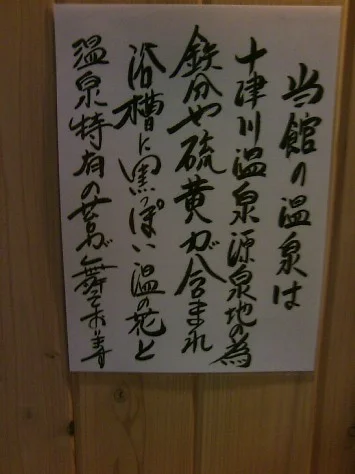 当館の温泉は
十津川温泉源泉地の為
鉄分や硫黄が含まれ
浴槽に黒っぽい温の花と
温泉特有の苔が舞って